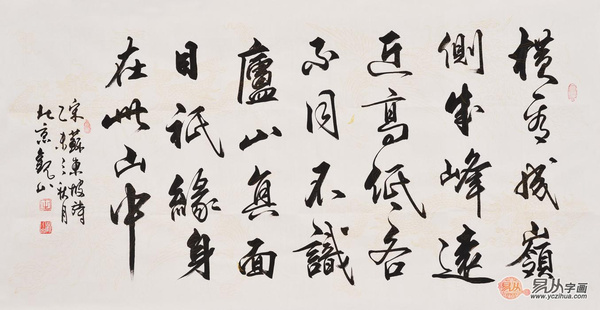 橫看成嶺
側成峰遠
近高低各
不同不識
廬山真面
目祇緣身
在此山中
宋蘇東坡詩
秋月
北京
易从
易从字画
www.yczihua.com